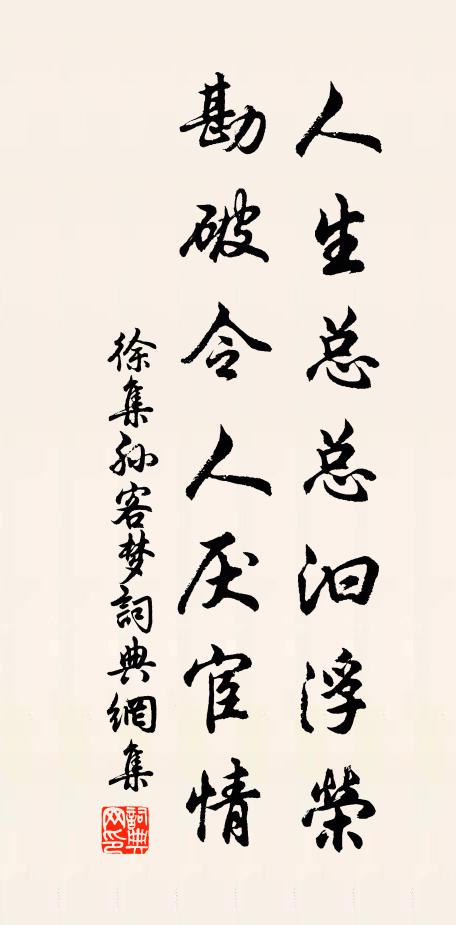 人生总总汩浮榮
勘破令人厌宦情
徐集孙客梦詞典網集
詞典网印